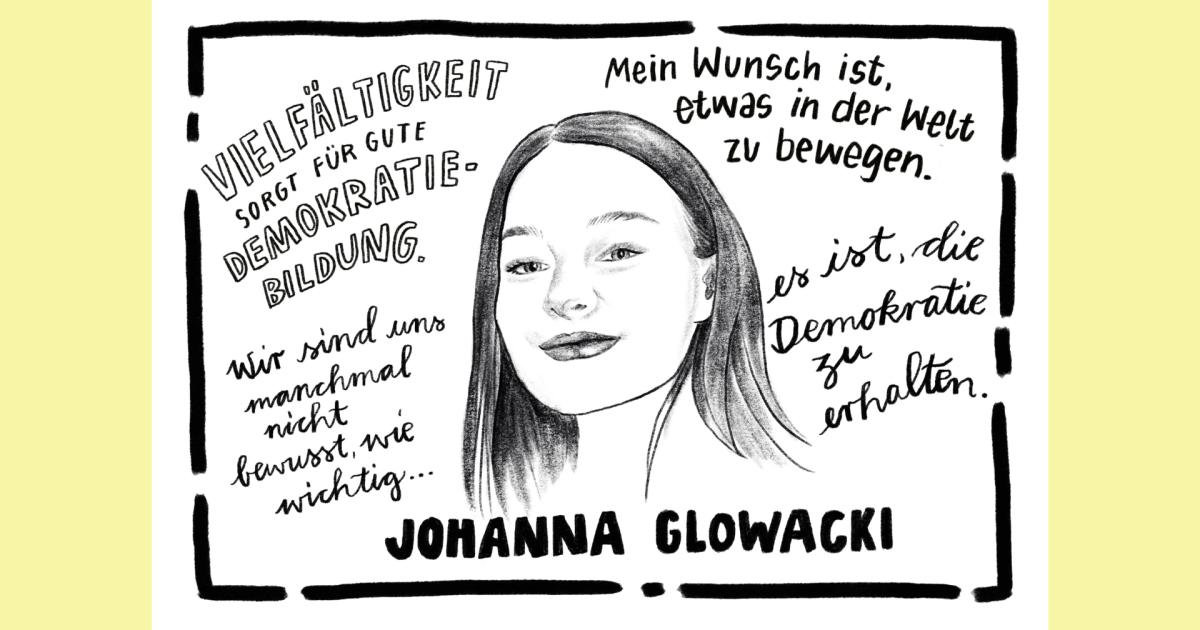 VIELFÄLTIGKEIT
SORGT FÜR GUTE
DEMOKRATIE-
BILDUNG.
Mein Wunsch ist,
etwas in der Welt
zu bewegen.
Wir sind uns
manchmal
nicht
bewusst, wie
wichtig...
es ist, die
Demokratie
zu
erhalten.
JOHANNA GLOWACKI